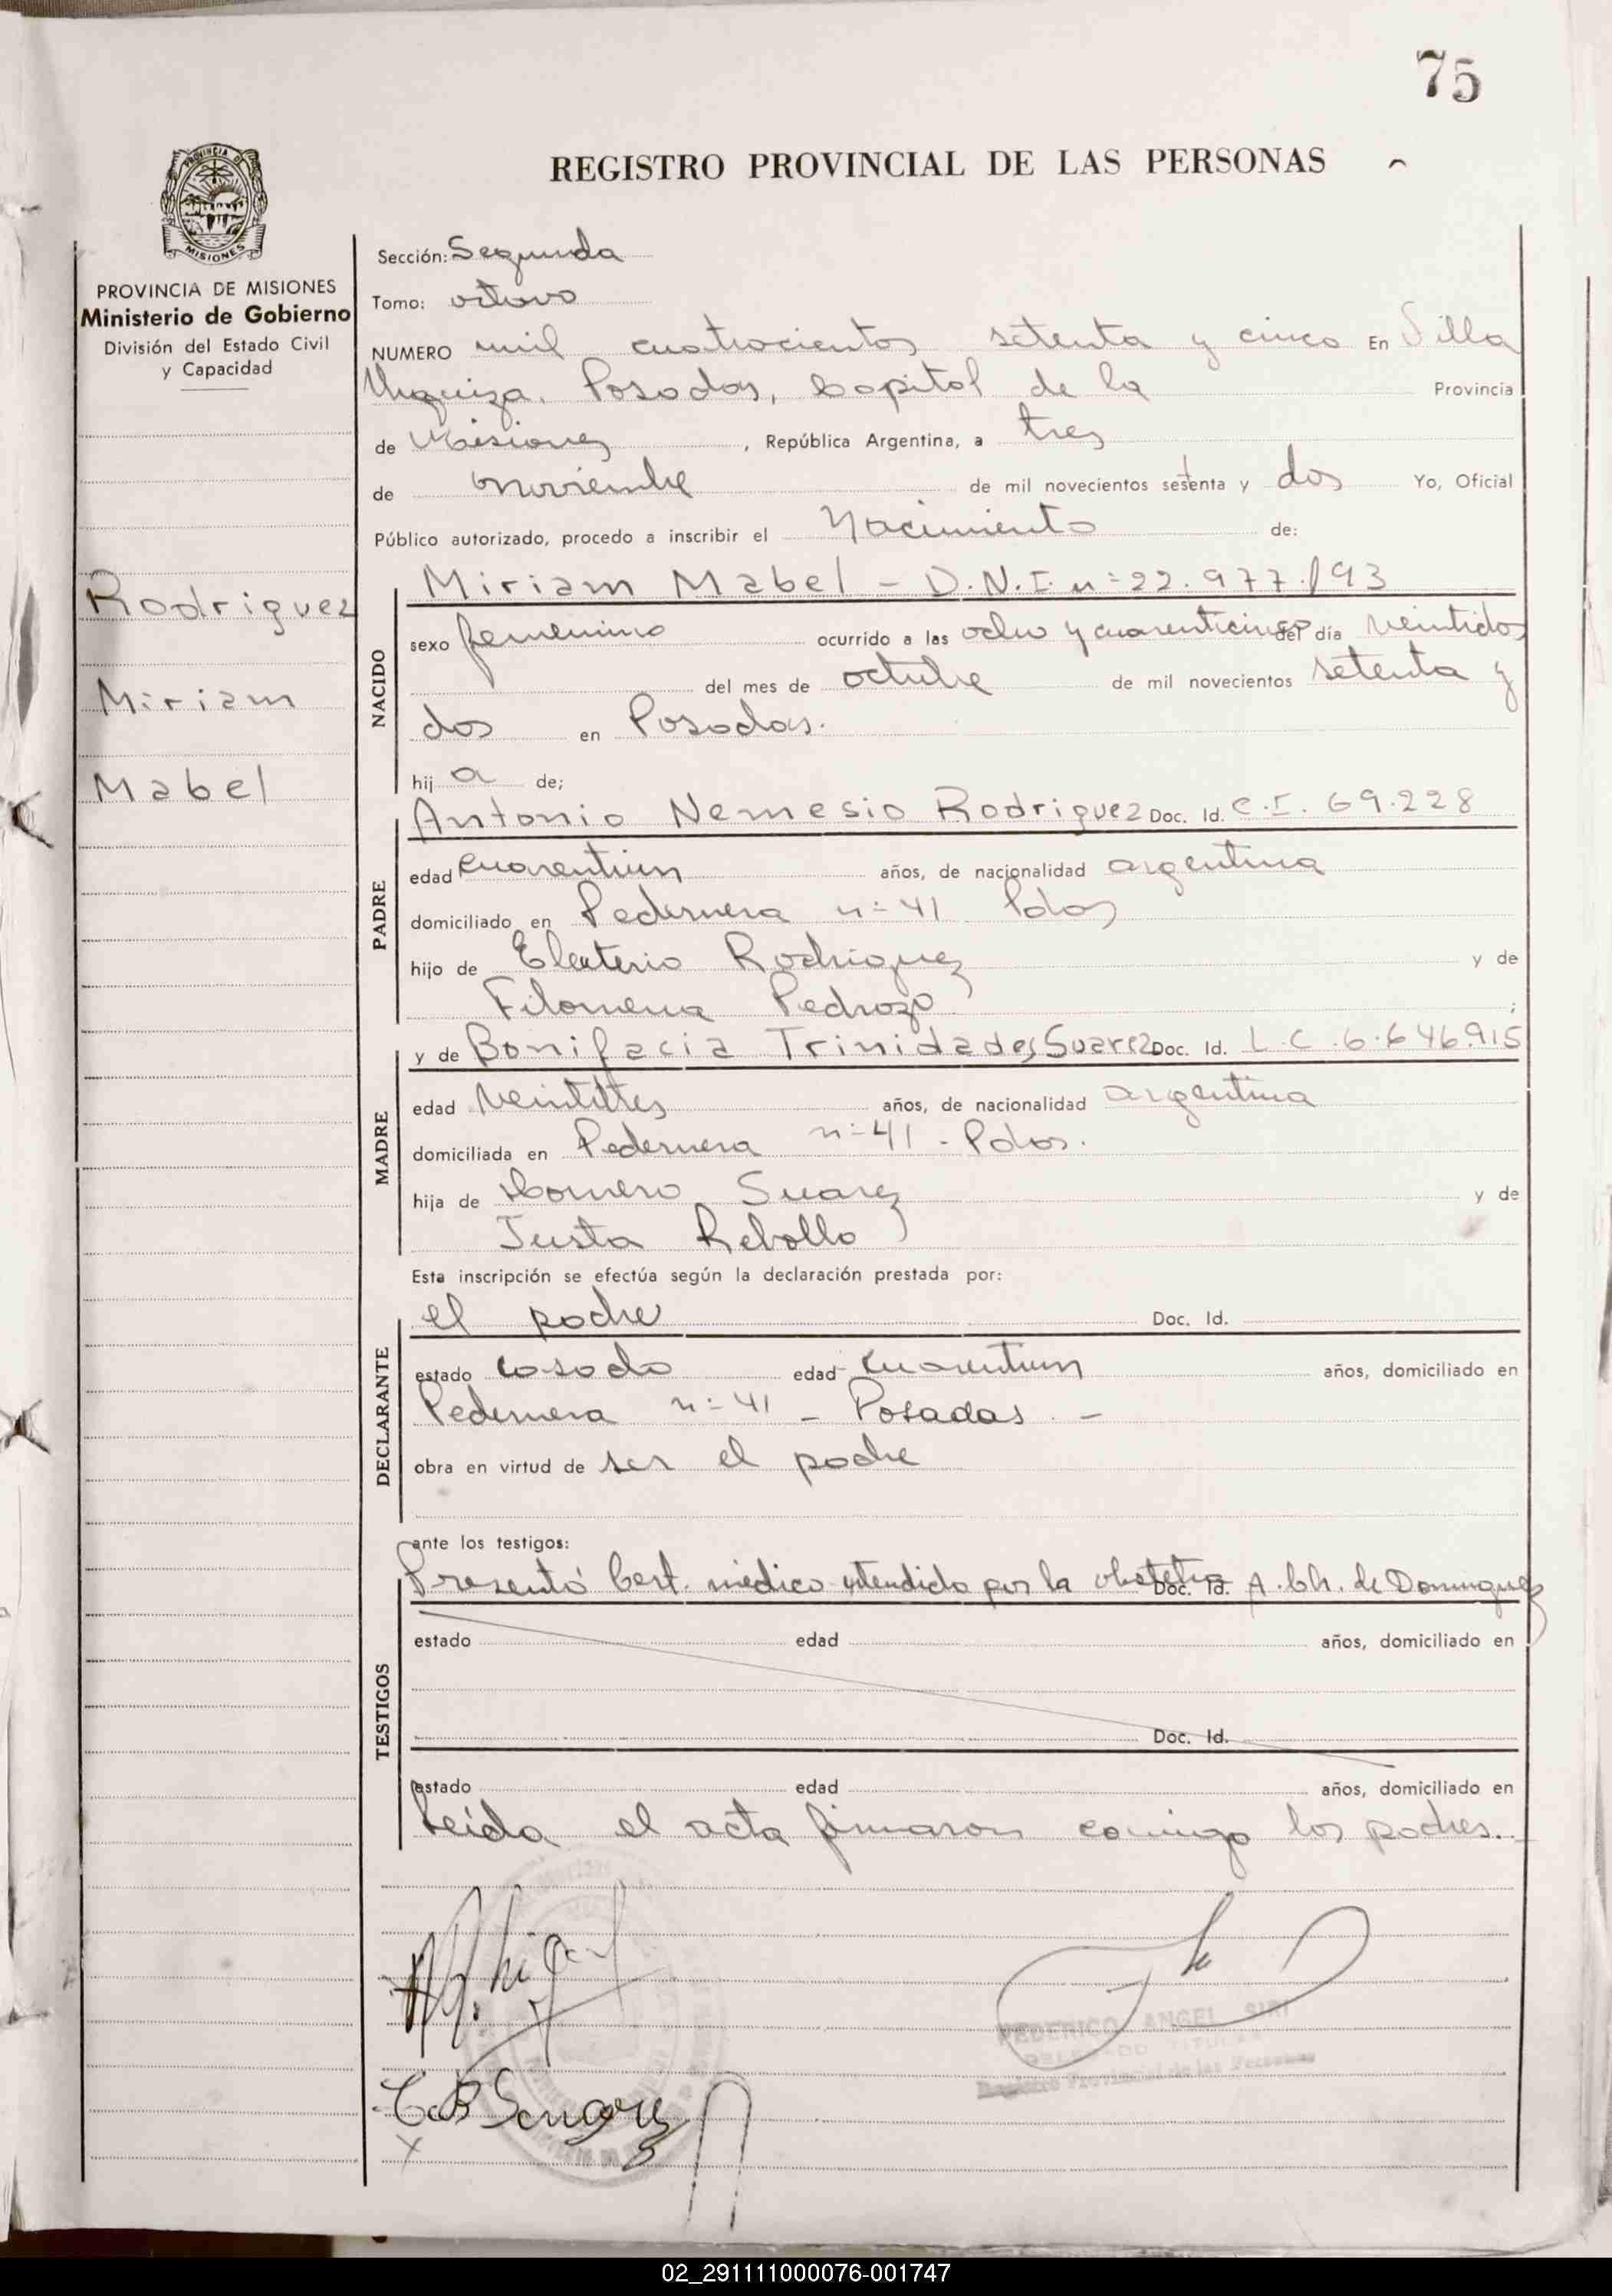 75
REGISTRO PROVINCIAL DE LAS PERSONAS
PROVINCIA DE
MISIONES
PROVINCIA DE MISIONES
Ministerio de Gobierno
División del Estado Civil
y Capacidad
Rodriguez
Miriam
Mabel
Sección: Segunda
Tomo: octavo
NUMERO mil cuatrocientos setenta y cinco En Villa
Urquiza. Posadas, Capital de la Provincia
de Misiones, República Argentina, a tres
de noviembre de mil novecientos setenta y dos Yo, Oficial
Público autorizado, procedo a inscribir el Nacimiento de:
NACIDO
Miriam Mabel - D.N.I. n=22.977.193
sexo femenino ocurrido a las ocho y cuarenticinco del día veintidos
del mes de octubre de mil novecientos setenta y
dos en Posadas.
hij a de;
PADRE
Antonio Nemesio Rodriguez Doc. Id. C.I. 69.228
edad cuarentiun años, de nacionalidad argentina
domiciliado en Pedernera n=41 Pdas
hijo de Eleuterio Rodriguez y de
Filomena Pedrozo ;
MADRE
y de Bonifacia Trinidades Suarez Doc. Id. L.C. 6.646.915
edad veintitres años, de nacionalidad argentina
domiciliada en Pedernera n=41 - Pdas.
hija de Homero Suarez y de
Justa Rebollo
Esta inscripción se efectúa según la declaración prestada por:
DECLARANTE
el padre Doc. Id.
estado casado edad cuarentiun años, domiciliado en
Pedernera n=41 - Posadas. -
obra en virtud de ser el padre
ante los testigos:
TESTIGOS
Presentó Cert. médico extendido por la obstetra Doc. Id. A. Ch. de Dominguez
estado edad años, domiciliado en
Doc. Id.
estado edad años, domiciliado en
Leída el acta firmaron conmigo los padres.
FEDERICO ANGEL SIRI
DELEGADO TITULAR
Registro Provincial de las Personas
02_291111000076-001747